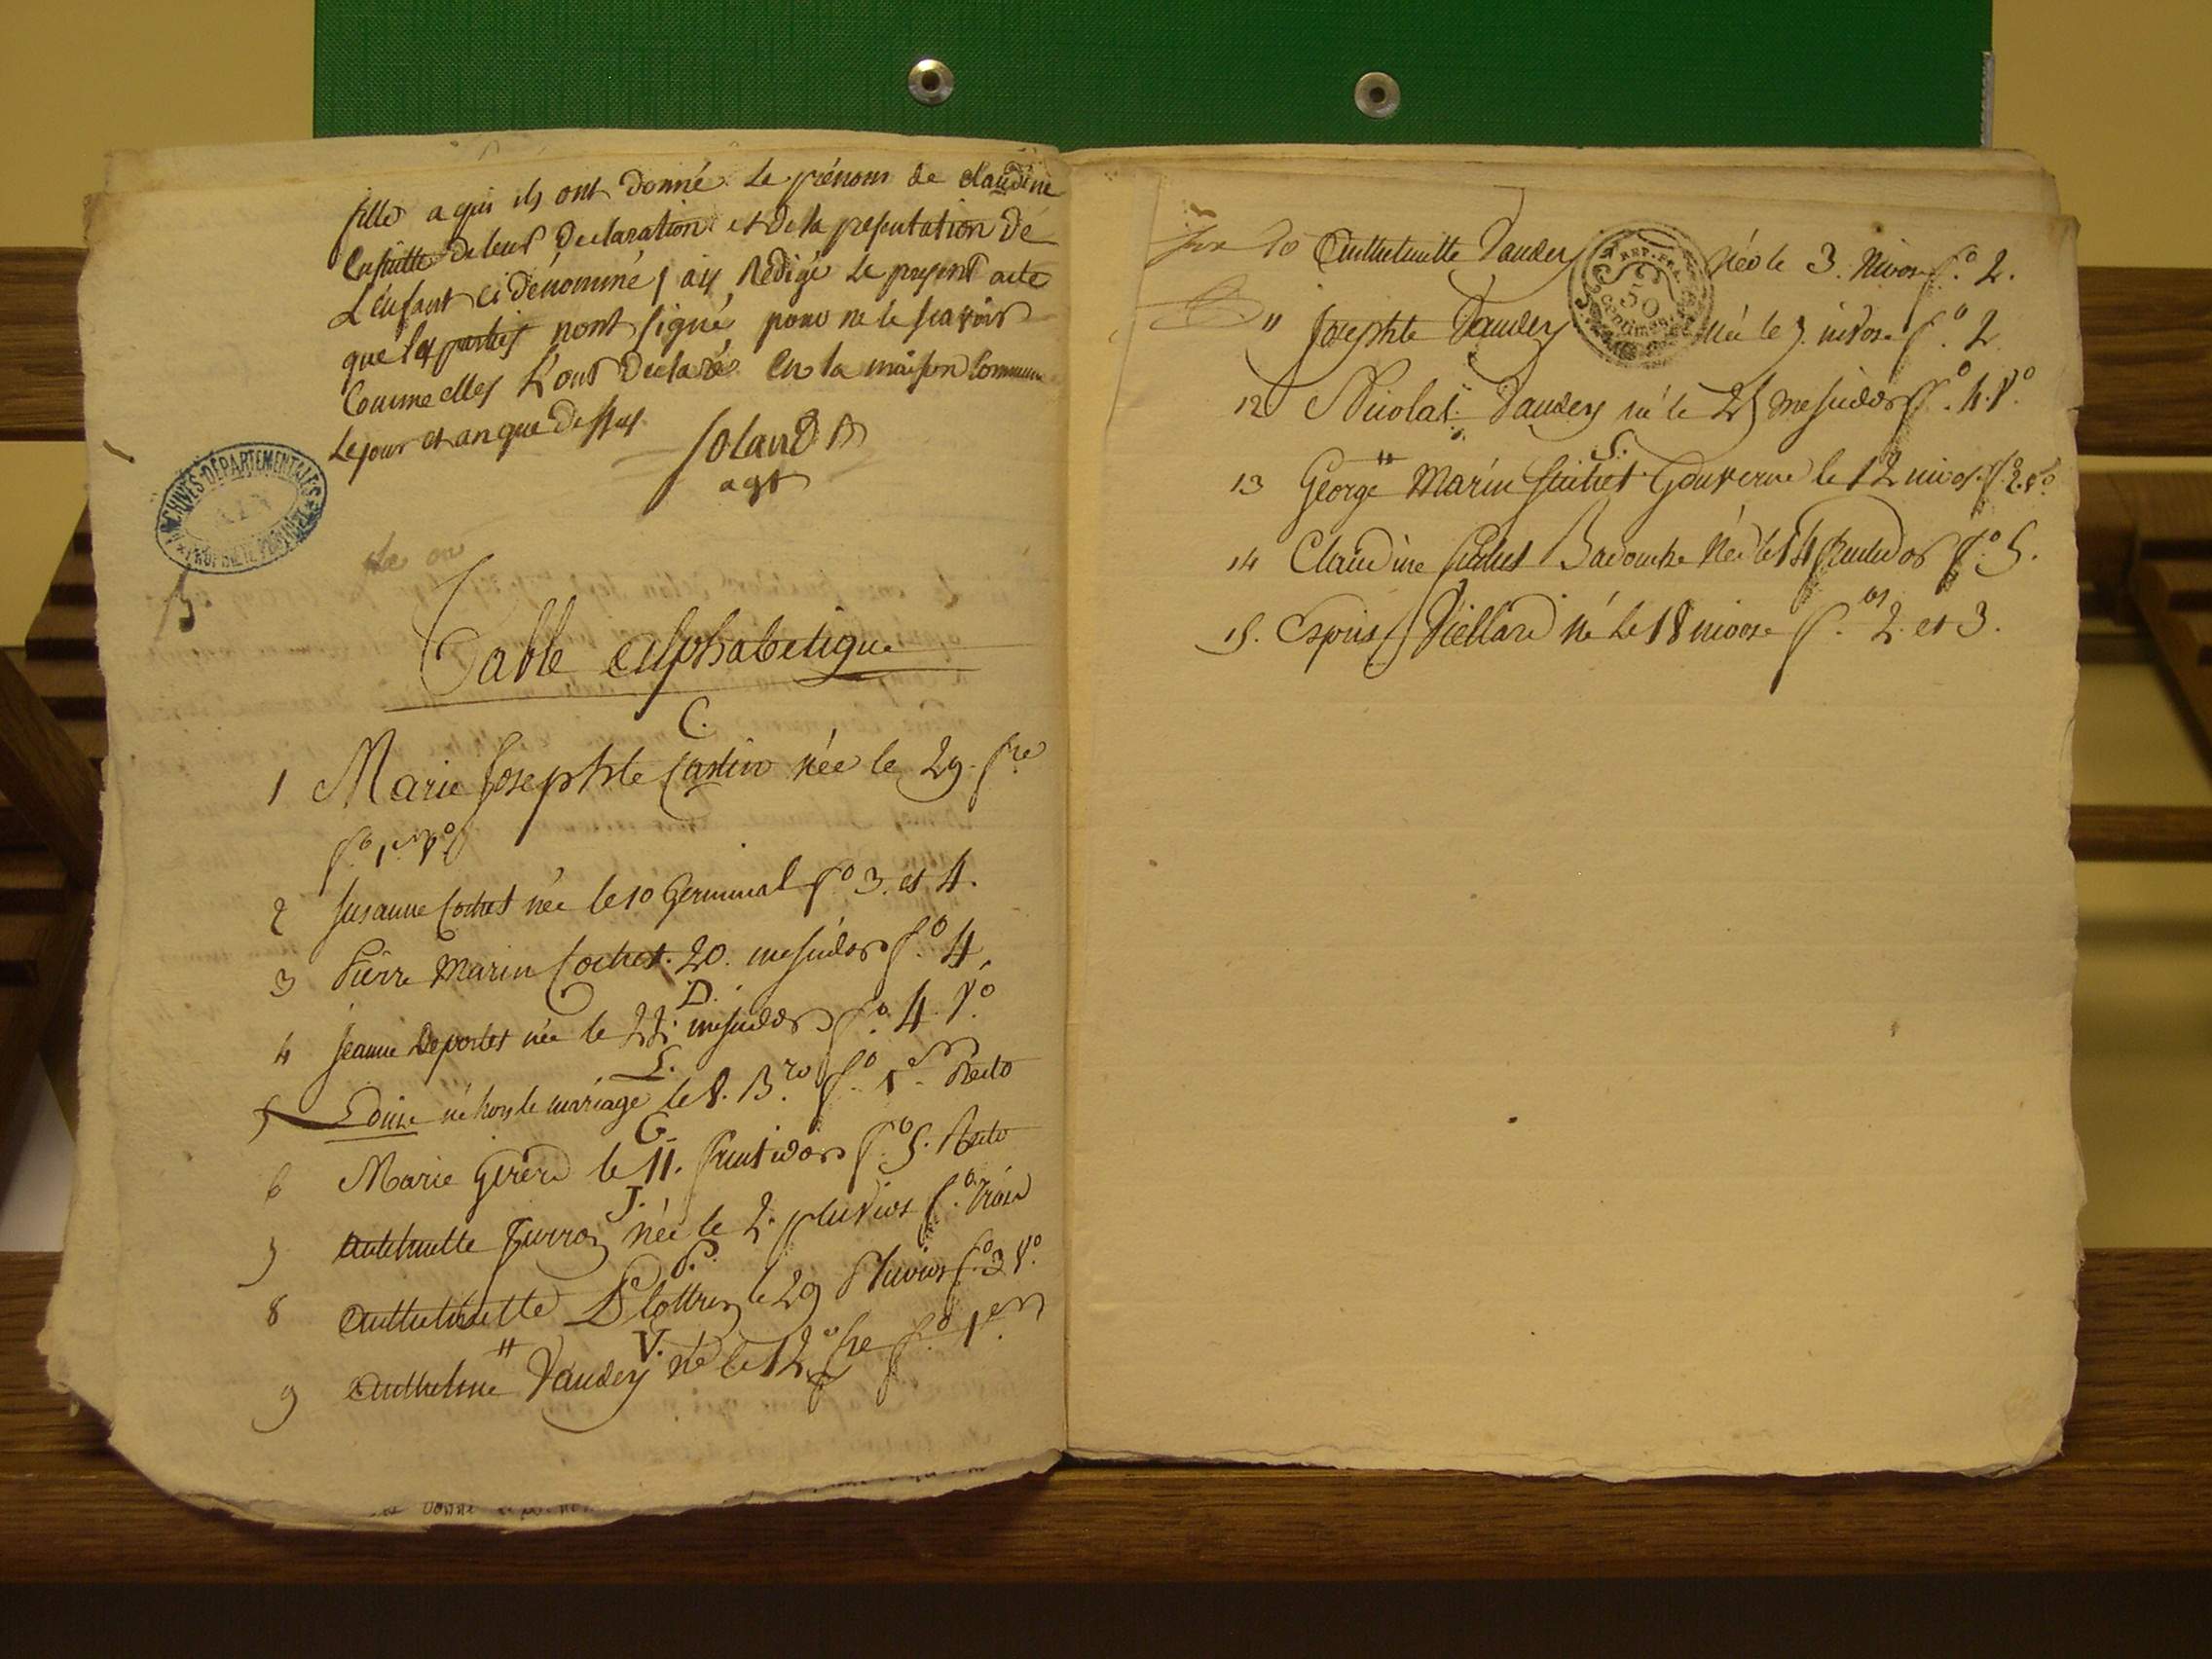 fille a qui ils ont donné le prénom de claudine
Ensuitte de leur Declaration et de la presentation de
L'enfant ci dénommé j'ay Redigé le present acte
que les parties n'ont signé pour ne le scavoir
Comme elles L'ont Declaré En la maison Commune
Le jour et an que dessus
agt
ARCHIVES DÉPARTEMENTALES
AIN
PROPRIÉTÉ PUBLIQUE
5
Table alphabetique
C.
1 Marie Josephte née le 29. fre
f.o 1.er v.o
2 Susanne Cochet née le 10 Germinal f.o 3. et 4.
3 Pierre Marin Cochet. 20. messidor f.o 4.
D.
4 jeanne Deportes née le 22. messidor f.o 4 v.o
L.
5 né hors le mariage le 8. B.re f.o 1er Recto
G.
6 Marie Girerd le 11. fructidor f.o 5. Recto
J.
7 anthelmette née le 2. pluvios f.o trois
P.
8 anthelmette le 29 Pluvios f.o 3 v.o
V.
9 anthelme Vaudey né le 12. fre f.o 1er
10 Anthelmette Vaudey née le 3. Nivos f.o 2.
REP. FRA.
50
Centimes
11 Josephte Vaudey née le 3. nivose f.o 2
12 Nicolas Vaudey né le 25 messidor f.o 4. v.o
S.
13 George Marin le 12 nivos. f.o 2. v.o
14 Claudine née le 14 fructidor f.o 5.
15. Viellard né le 18 nivose f.os 2. et 3.